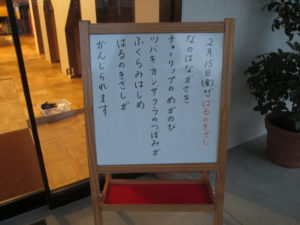 2月15日(金)ぜ はるのきざし
なのはながさき
チューリップのめがのび
ツバキカンザクラのつぼみが
ふくらみはじめ
はるのきざしが
かんじられます